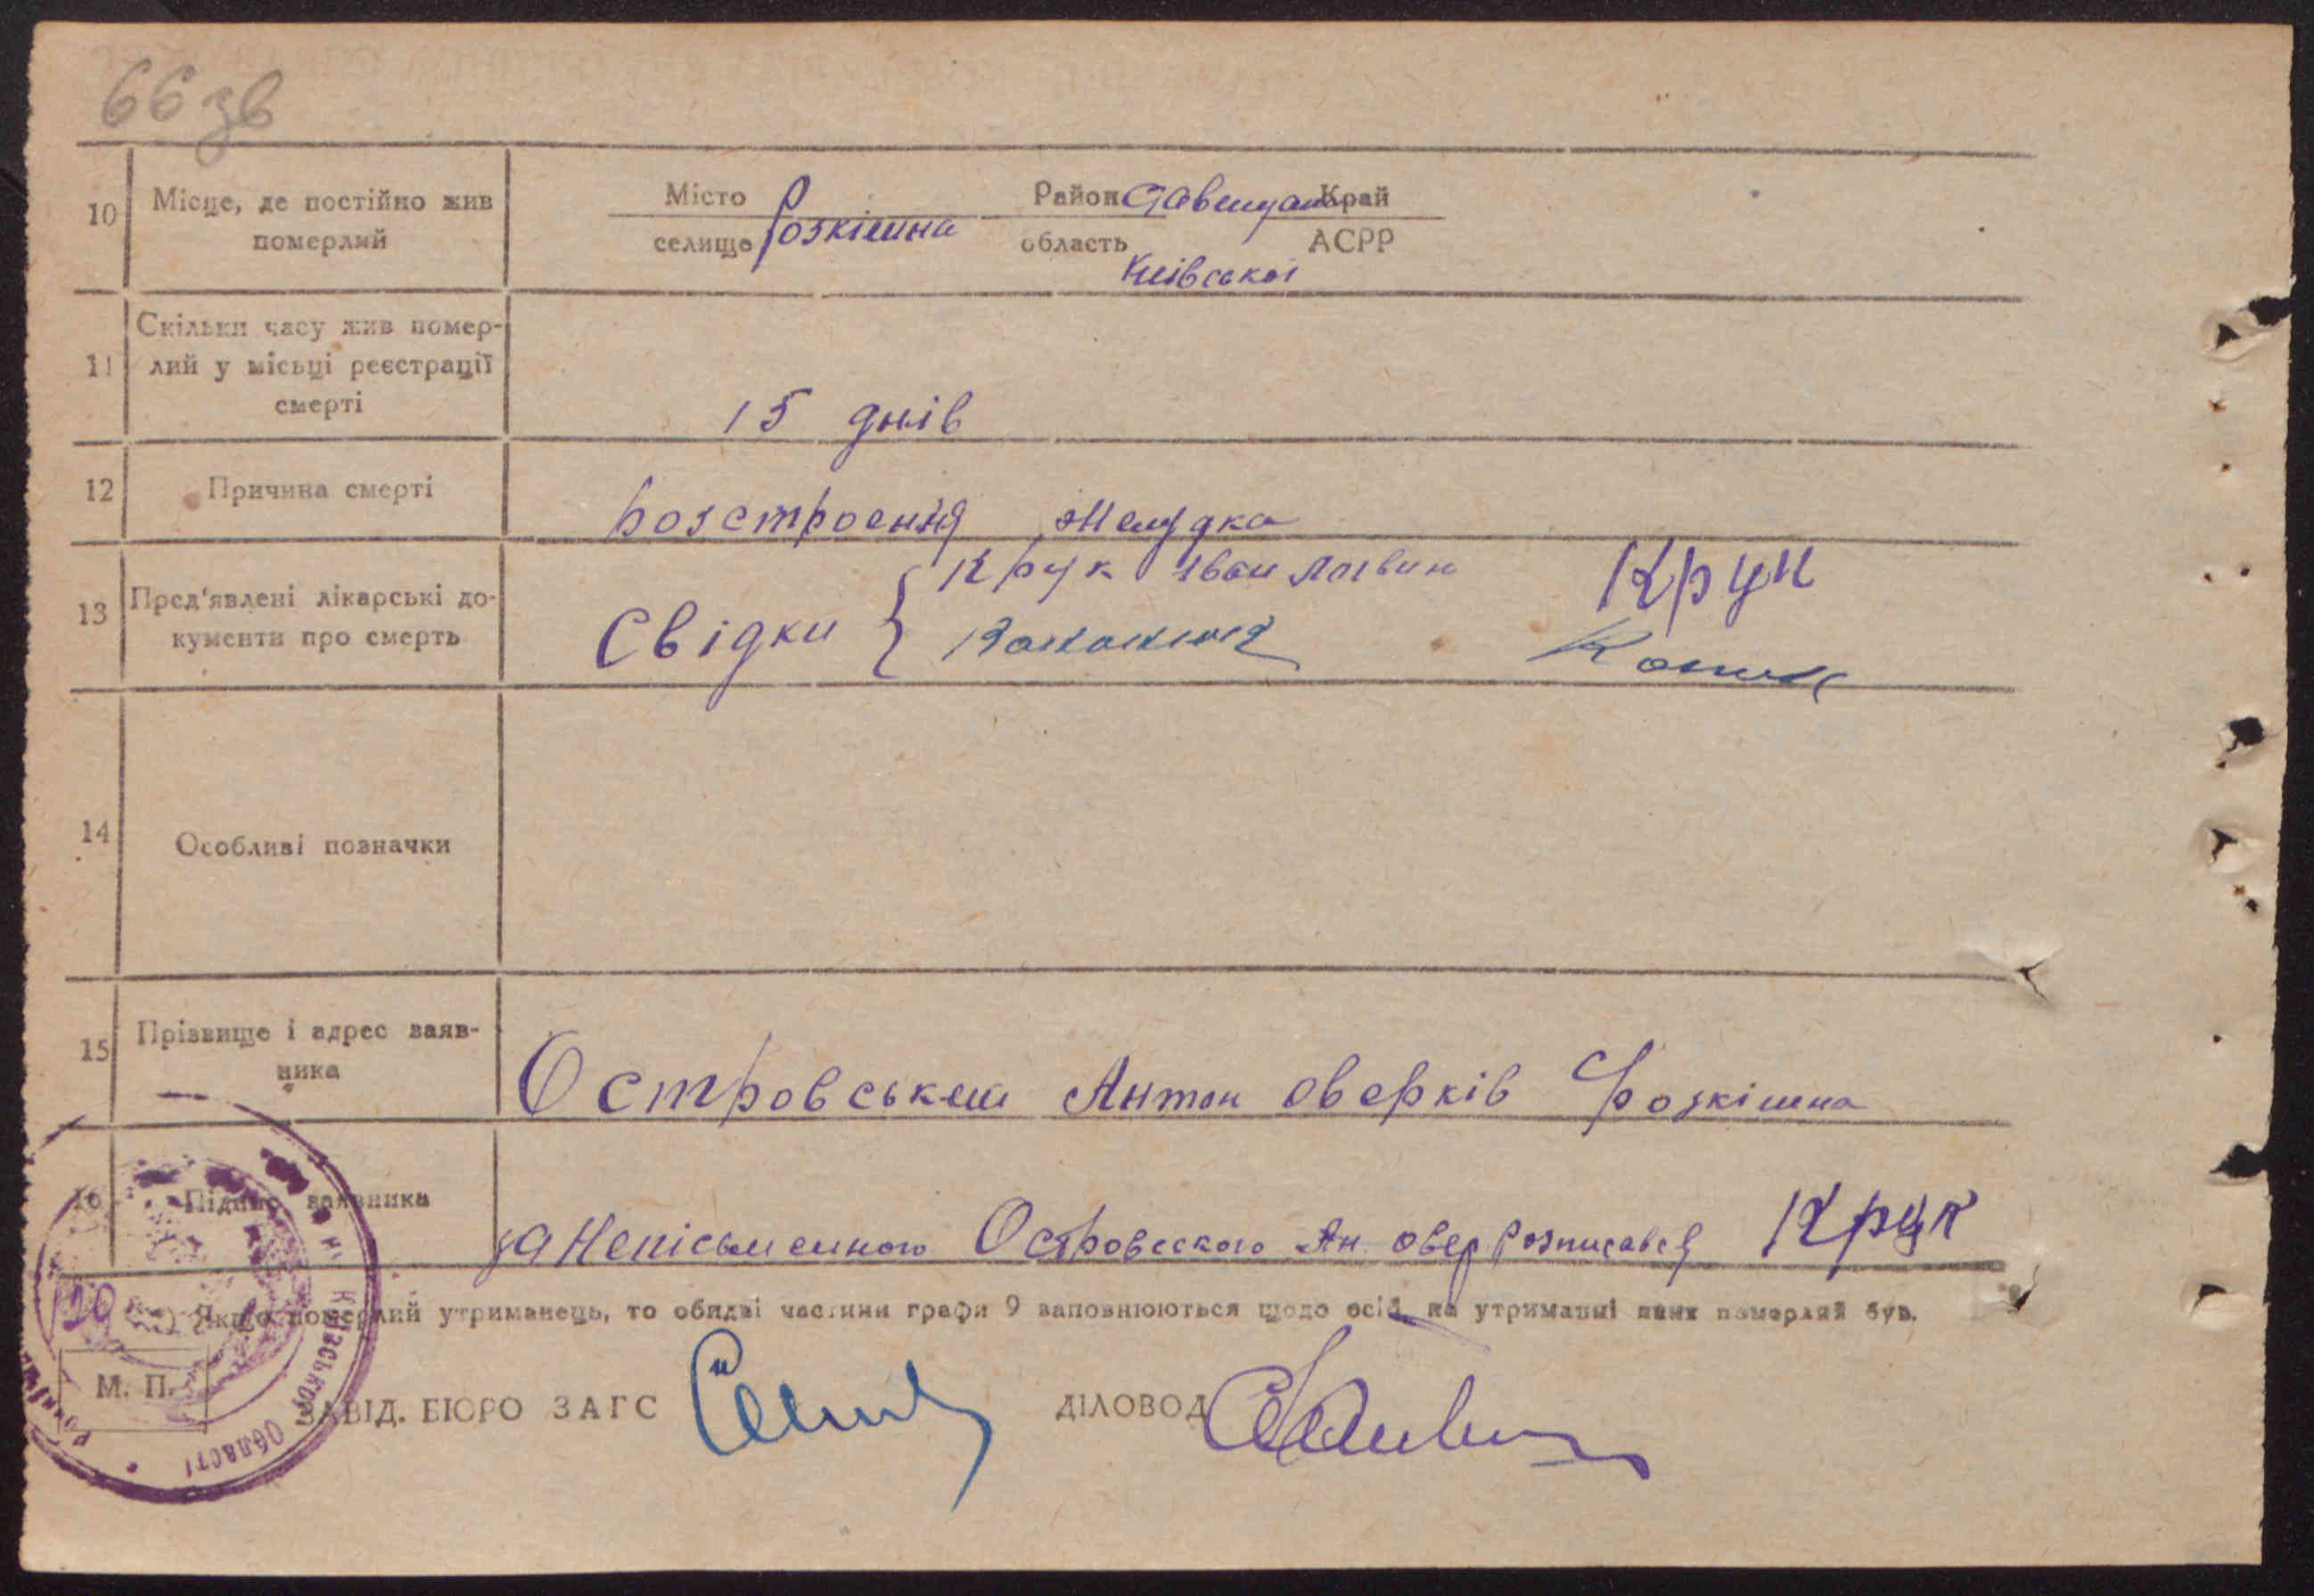 66 зв
10 Місце, де постійно жив померлий
Місто селище Розкішна Район Ставищан Край
область АСРР
Київської
11 Скільки часу жив помер-
лий у місьці реєстрації
смерті
15 днів
12 Причина смерті
розстроення желудка
13 Пред'явлені лікарські до-
кументи про смерть
Свідки { Крук Іван Логвин Крук
14 Особливі позначки
15 Прізвище і адрес заяв-
ника
Островський Антон Оверків Розкішна
16 Підпис заявника
за неписьменного Островського Ан Овер розписався Крук
) Якщо померлий утриманець, то обидві частини графи 9 заповнюються щодо осіб, на утриманні яких померлий був.
М. П.
ЗАВІД. БЮРО ЗАГС
ДІЛОВОД
Київської Області